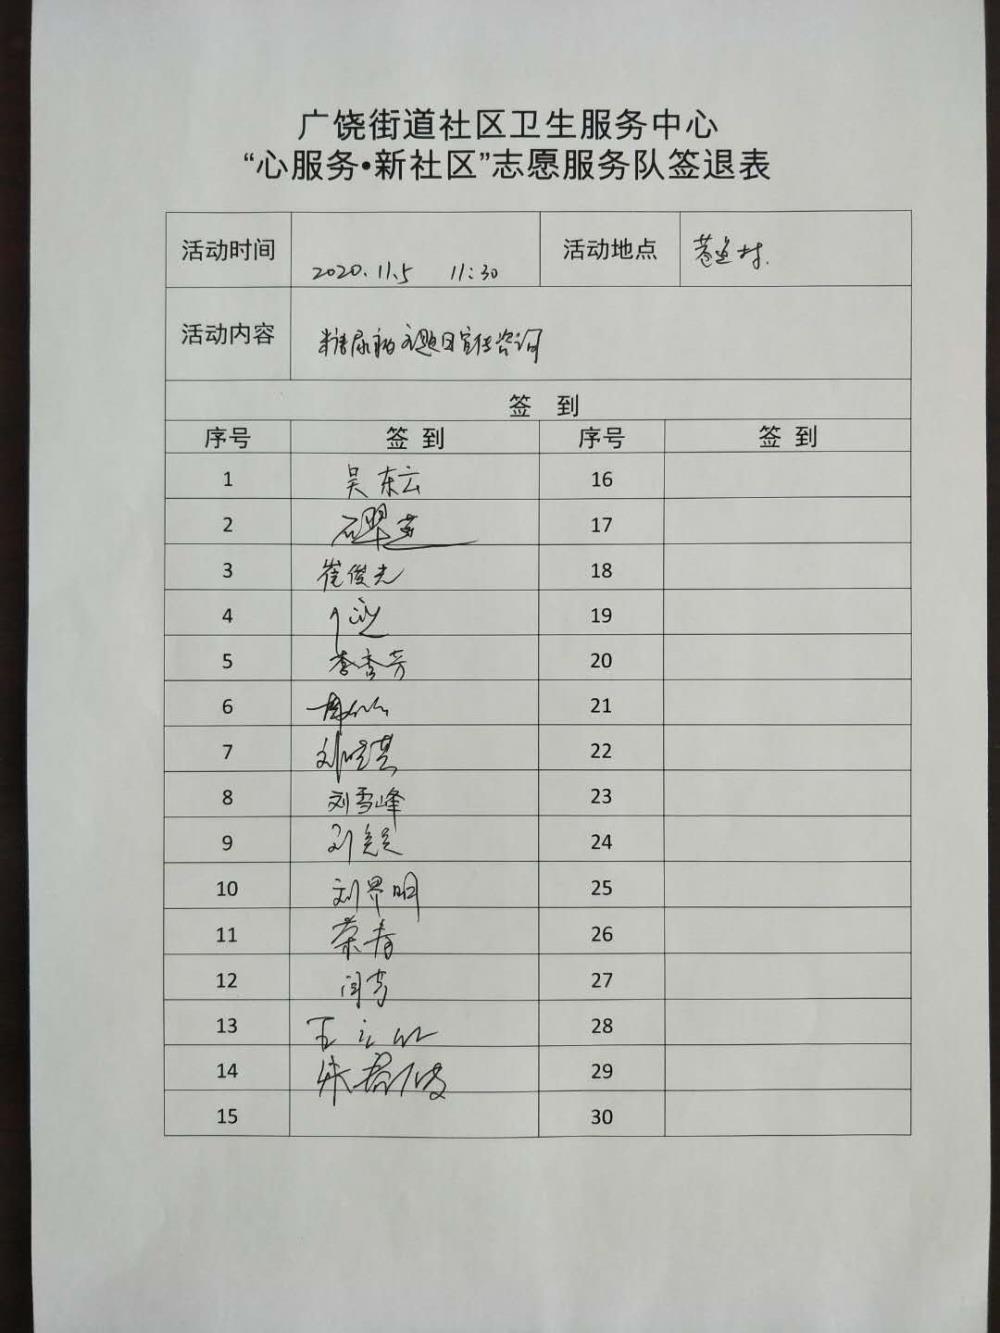 广饶街道社区卫生服务中心
“心服务•新社区”志愿服务队签退表
活动时间 2020.11.5 11:30 活动地点 村.
活动内容 糖尿病主题日宣传咨询
签 到
序号 签 到 序号 签 到
1 吴东云 16
2 17
3 崔俊光 18
4 19
5 李秀芳 20
6 21
7 22
8 刘雪峰 23
9 刘 24
10 刘界明 25
11 荣春 26
12 闫芳 27
13 王 28
14 朱 29
15 30